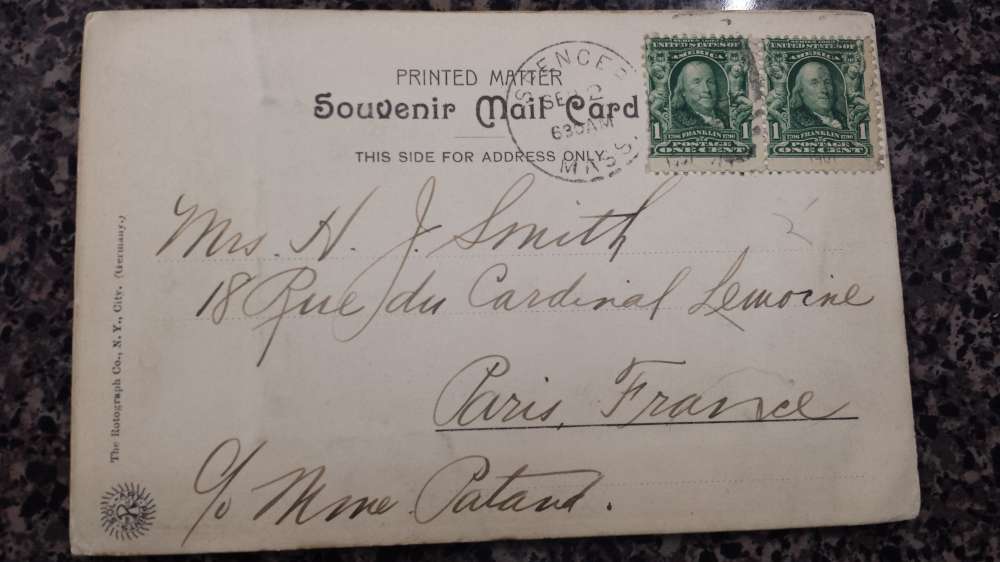 PRINTED MATTER
Souvenir Mail Card
THIS SIDE FOR ADDRESS ONLY
SPENCER
SEP 2
630AM
MASS.
SERIES 1902
UNITED STATES OF
AMERICA
1 1706 FRANKLIN 1790 1
POSTAGE
ONE CENT
SERIES 1902
UNITED STATES OF
AMERICA
1 1706 FRANKLIN 1790 1
POSTAGE
ONE CENT
Mrs. H. J. Smith
18 Rue du Cardinal Lemoine
Paris, France
c/o Mme Patard.
The Rotograph Co., N. Y., City. (Germany.)